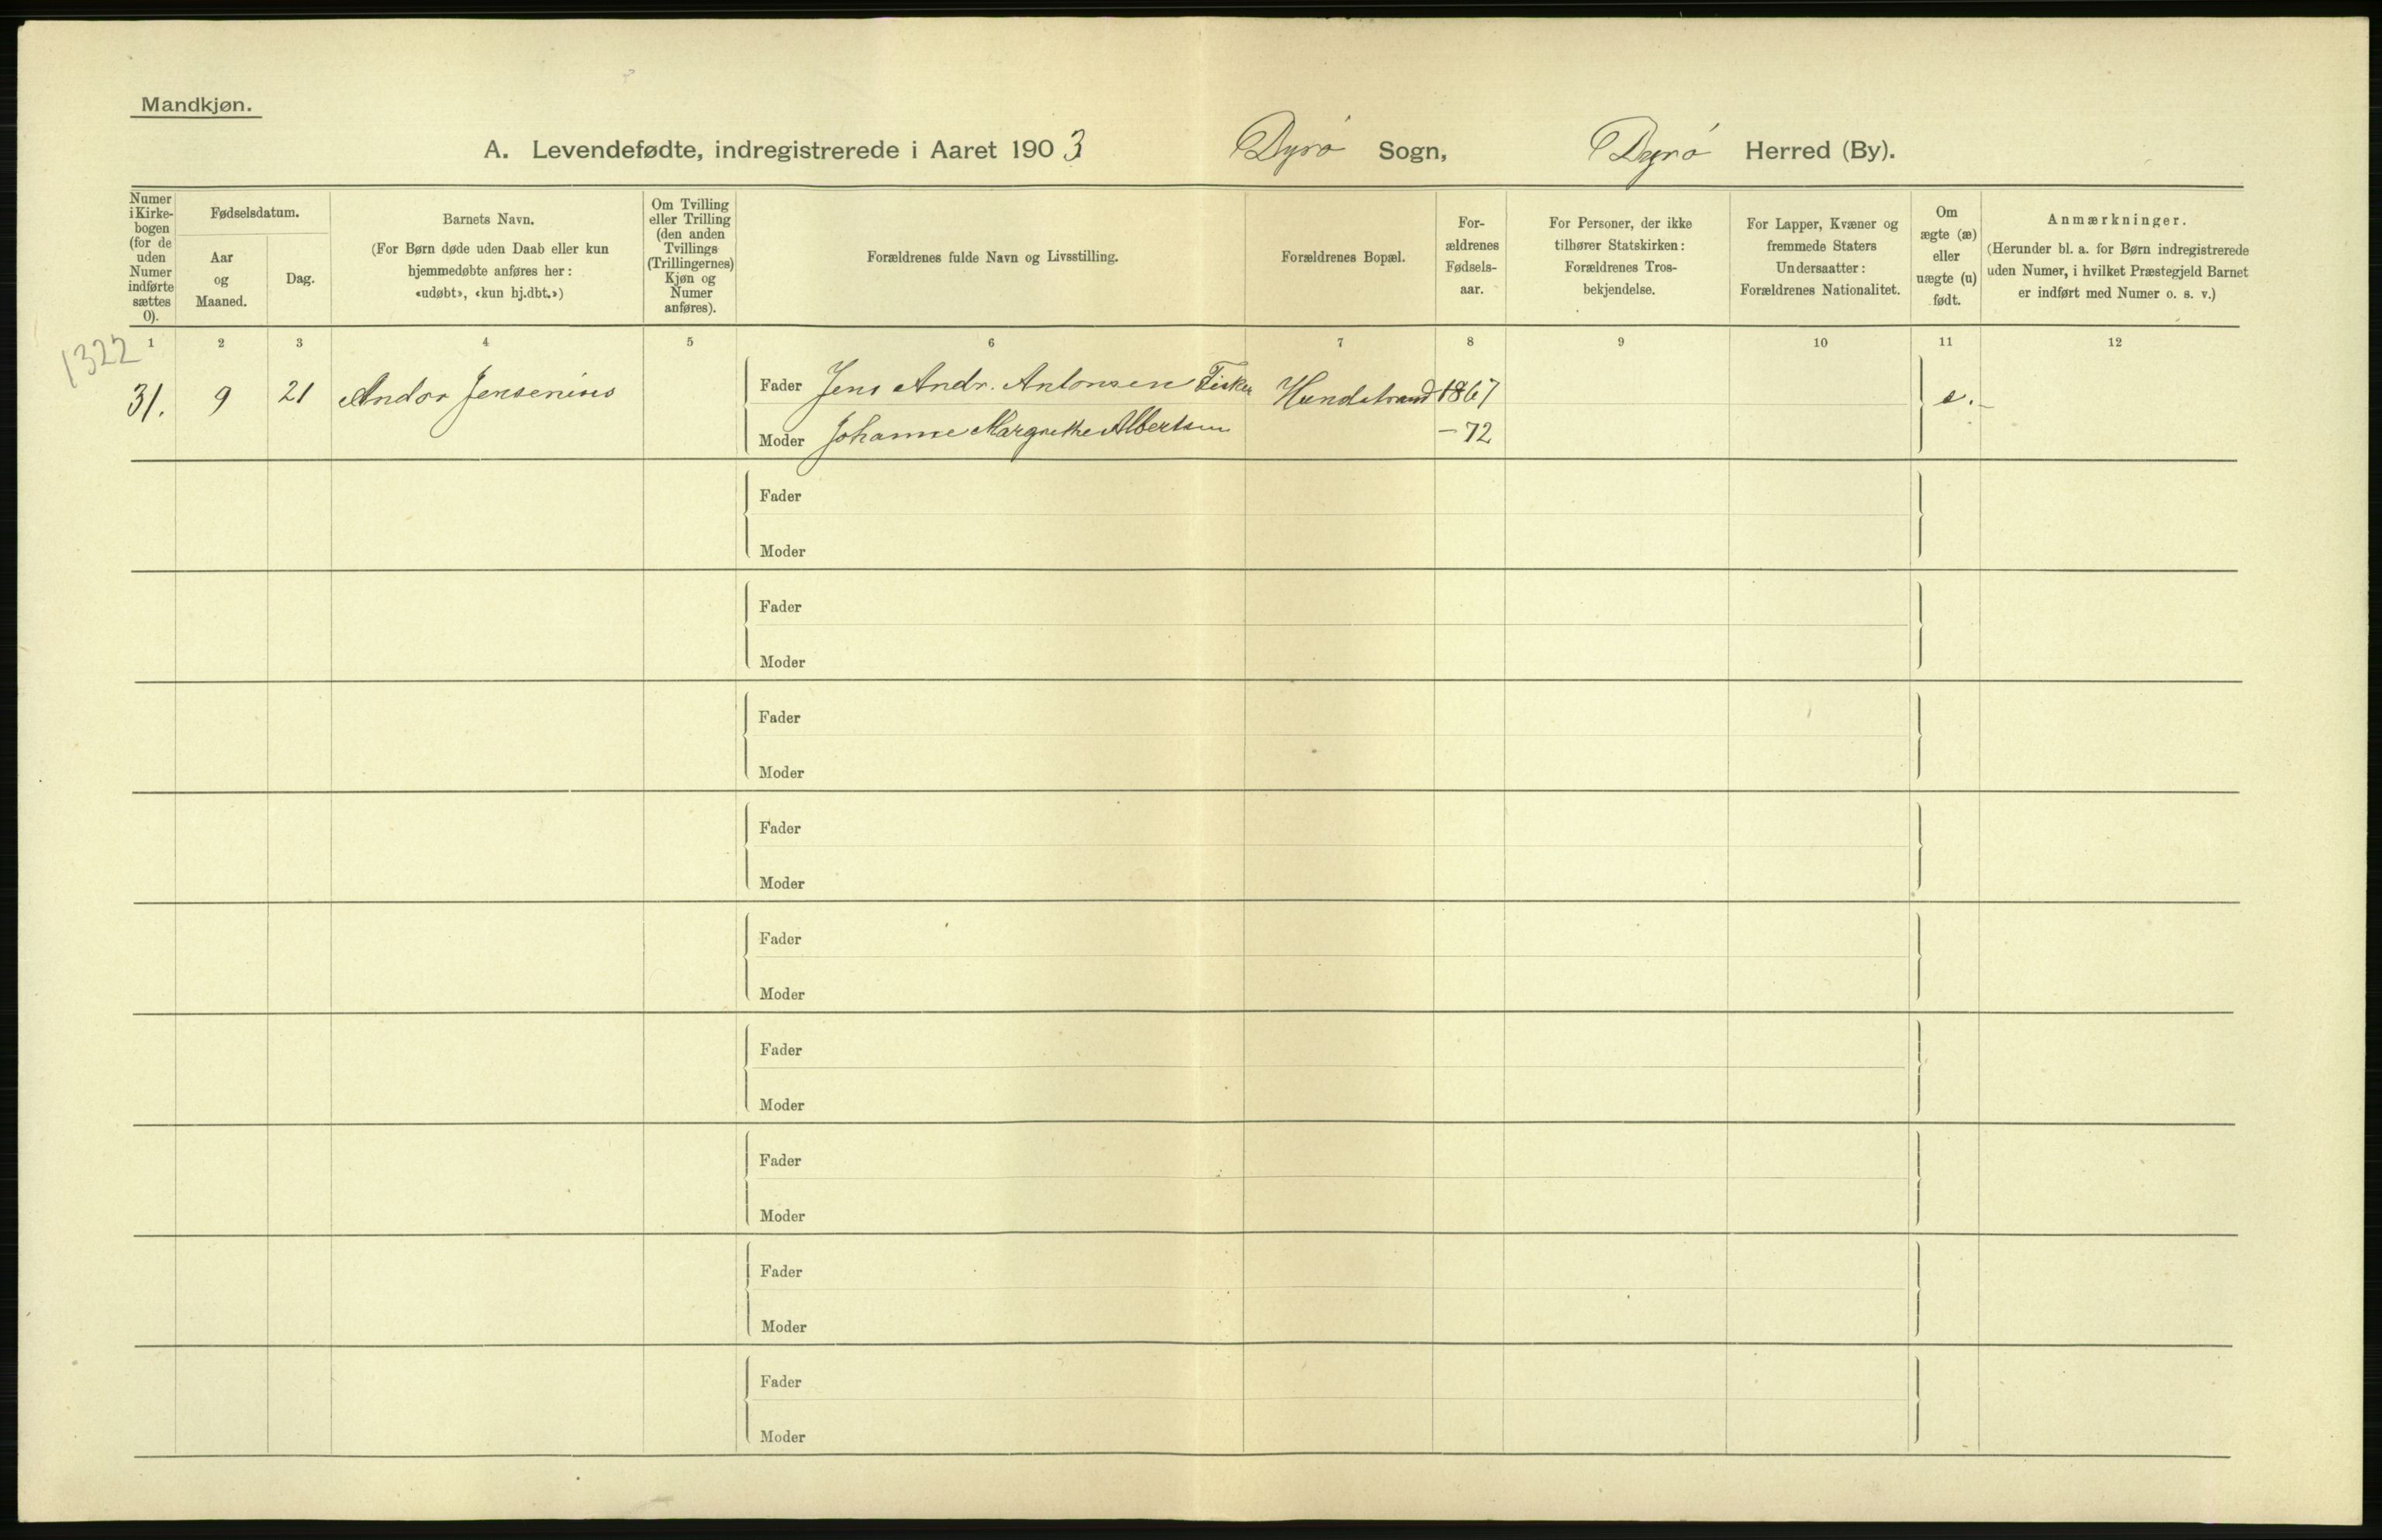 Mandkjøn.
A. Levendefødte, indregistrerede i Aaret 1903 Dyrø Sogn, Dyrø Herred (By).
Numer i Kirke-bogen (for de uden Numer indførte sættes 0).
Fødselsdatum.
Aar og Maaned.
Dag.
Barnets Navn.
(For Børn døde uden Daab eller kun
hjemmedøbte anføres her:
«udøbt», «kun hj.dbt.»)
Om Tvilling
eller Trilling
(den anden
Tvillings
(Trillingernes)
Kjøn og
Numer
anføres).
Forældrenes fulde Navn og Livsstilling.
Forældrenes Bopæl.
For-
ældrenes
Fødsels-
aar.
For Personer, der ikke
tilhører Statskirken:
Forældrenes Tros-
bekjendelse.
For Lapper, Kvæner og
fremmede Staters
Undersaatter:
Forældrenes Nationalitet.
Om
ægte (æ)
eller
uægte (u)
født.
Anmærkninger.
(Herunder bl. a. for Børn indregistrerede
uden Numer, i hvilket Præstegjeld Barnet
er indført med Numer o. s. v.)
1322
1 2 3 4 5 6 7 8 9 10 11 12
31. 9 21 Andor Jensenius Fader Jens Andr. Antonsen Fisker Hundstrand 1867
Moder Johanne Margrethe Albertsen - 72
Fader
Moder
Fader
Moder
Fader
Moder
Fader
Moder
Fader
Moder
Fader
Moder
Fader
Moder
Fader
Moder
Fader
Moder